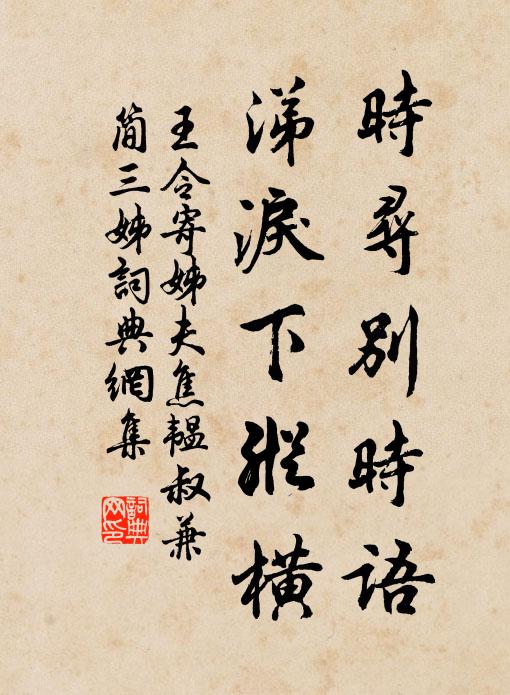 時尋別時語
涕淚下縱橫
王令寄姊夫焦韞叔兼
簡三姊詞典網集
詞典網印